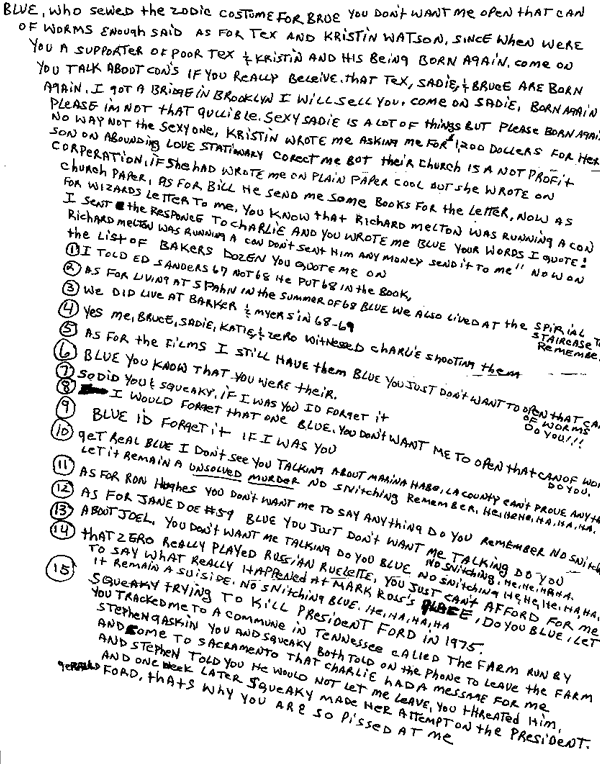 BLUE, WHO SEWED THE ZODIC COSTUME FOR BRUE YOU DON'T WANT ME OPEN THAT CAN
OF WORMS ENOUGH SAID AS FOR TEX AND KRISTIN WATSON, SINCE WHEN WERE
YOU A SUPPORTER OF POOR TEX & KRISTIN AND HIS BEING BORN AGAIN. COME ON
YOU TALK ABOUT CON'S IF YOU REALLY BELEIVE. THAT TEX, SADIE, & BRUCE ARE BORN
AGAIN. I GOT A BRIDGE IN BROOKLYN I WILL SELL YOU. COME ON SADIE, BORN AGAIN
PLEASE I'M NOT THAT GULLIBLE. SEXY SADIE IS A LOT OF THINGS BUT PLEASE BORN AGAIN
NO WAY NOT THE SEXY ONE, KRISTIN WROTE ME ASKING ME FOR $1,200 DOLLERS FOR HER
SON ON ABOUNDING LOVE STATIONARY CORECT ME BUT THEIR CHURCH IS A NOT PROFIT
CORPERATION, IF SHE HAD WROTE ME ON PLAIN PAPER COOL BUT SHE WROTE ON
CHURCH PAPER, AS FOR BILL HE SEND ME SOME BOOKS FOR THE LETTER, NOW AS
FOR WIZARDS LETTER TO ME, YOU KNOW THAT RICHARD MELTON WAS RUNNING A CON
I SENT THE RESPONCE TO CHARLIE AND YOU WROTE ME BLUE YOUR WORDS I QUOTE!
RICHARD MELTON WAS RUNNING A CON DON'T SENT HIM ANY MONEY SEND IT TO ME" NOW ON
THE LIST OF BAKERS DOZEN YOU QUOTE ME ON
① I TOLD ED SANDERS 67 NOT 68 HE PUT 68 IN THE BOOK,
② AS FOR LIVING AT SPAHN IN THE SUMMER OF 68 BLUE WE ALSO LIVED AT THE SPIRIAL
STAIRCASE
REMEMBE
③ WE DID LIVE AT BARKER & MYERS IN 68-69
④ YES ME, BRUCE, SADIE, KATIE, & ZERO WITNESSED CHARLIE SHOOTING THEM
⑤ AS FOR THE FILMS I STILL HAVE THEM BLUE YOU JUST DON'T WANT TO OPEN THAT CAN
OF WORMS
DO YOU!!!
⑥ BLUE YOU KNOW THAT YOU WERE THEIR.
⑦ SO DID YOU & SQUEAKY. IF I WAS YOU ID FORGET IT
⑧ I WOULD FORGET THAT ONE BLUE. YOU DON'T WANT ME TO OPEN THAT CAN OF WO
DO YOU.
⑨ BLUE ID FORGET IT IF I WAS YOU
⑩ GET REAL BLUE I DON'T SEE YOU TALKING ABOUT MARINA HABE, LA COUNTY CAN'T PROVE ANYTH
LET IT REMAIN A UNSOLVED MURDER NO SNITCHING REMEMBER, HE, HE, HE, HA, HA, HA.
⑪ AS FOR RON HUGHES YOU DON'T WANT ME TO SAY ANYTHING DO YOU REMEMBER NO SNITCH
⑫ AS FOR JANE DOE #59 BLUE YOU JUST DON'T WANT ME TALKING DO YOU
NO SNITCHING, HE, HE, HA HA.
⑬ ABOUT JOEL, YOU DON'T WANT ME TALKING DO YOU BLUE NO SNITCHING HE, HE, HE, HA, HA,
⑭ THAT ZERO REALLY PLAYED RUSSIAN RUELETTE, YOU JUST CAN'T AFFORD FOR ME
TO SAY WHAT REALLY HAPPENED AT MARK ROSS'S PLACE, DO YOU BLUE, LET
IT REMAIN A SUISIDE. NO SNITCHING BLUE. HE, HA, HA, HA
⑮ SQUEAKY TRYING TO KILL PRESIDENT FORD IN 1975.
YOU TRACKED ME TO A COMMUNE IN TENNESSEE CALLED THE FARM RUN BY
STEPHEN GASKIN YOU AND SQUEAKY BOTH TOLD ON THE PHONE TO LEAVE THE FARM
AND COME TO SACRAMENTO THAT CHARLIE HAD A MESSAGE FOR ME
AND STEPHEN TOLD YOU HE WOULD NOT LET ME LEAVE, YOU THREATED HIM,
AND ONE WEEK LATER SQUEAKY MADE HER ATTEMPT ON THE PRESIDENT.
GERALD FORD, THATS WHY YOU ARE SO PISSED AT ME